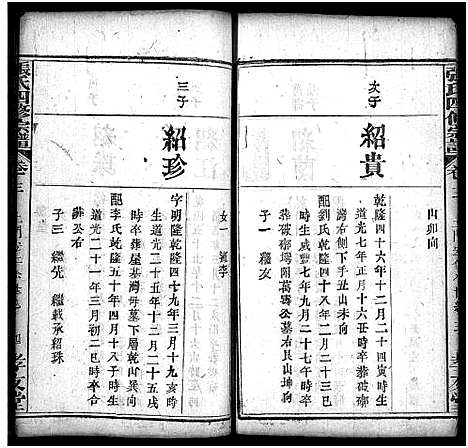 張氏四修宗譜
卷三
孝友堂
酉卯向
次子
紹貴
乾隆四十六年十二月二十四寅時生
道光七年正月十六丑時卒葬破磡
灣右側下手丑山未向
配劉氏乾隆四十八年二月二十三巳
時生道光二十七年二月二十七午時
卒葬破磡周萬鎊公墓右艮山坤向
子一 繼友
女一 適李
三子
紹珍
字明隆乾隆四十九年三月十九亥時
生道光二十五年十二月二十五戌
時卒葬屋基灣母墓下層乾山巽向
配李氏乾隆五十年四月十八子時生
道光二十一年三月初二巳時卒合
葬公右
子三 繼先 繼載承紹珠
張氏四修宗譜
卷三
四
孝友堂